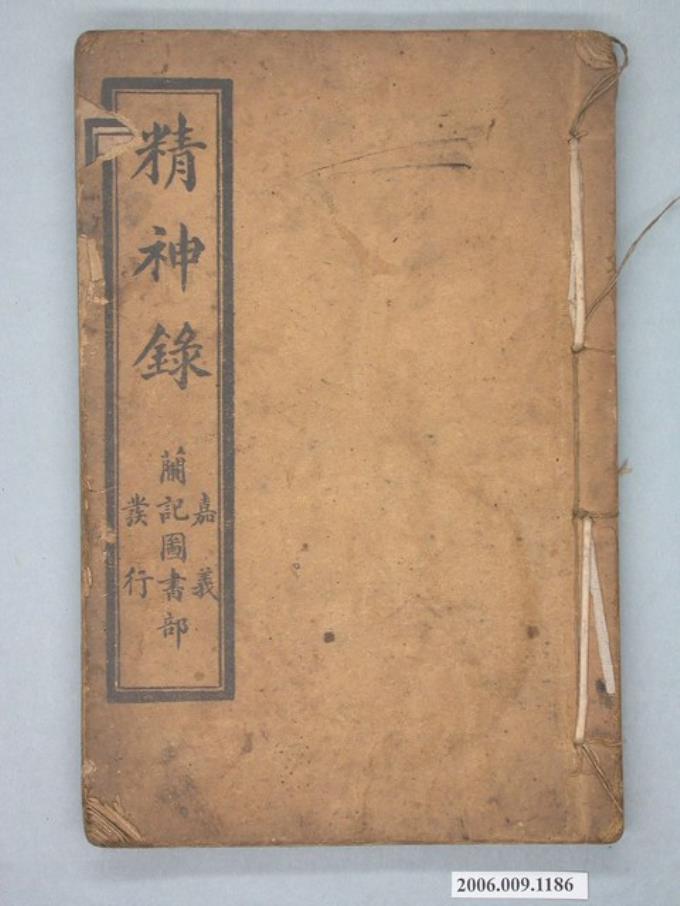 精神錄
嘉義
蘭記圖書部
發行
2006.009.1186